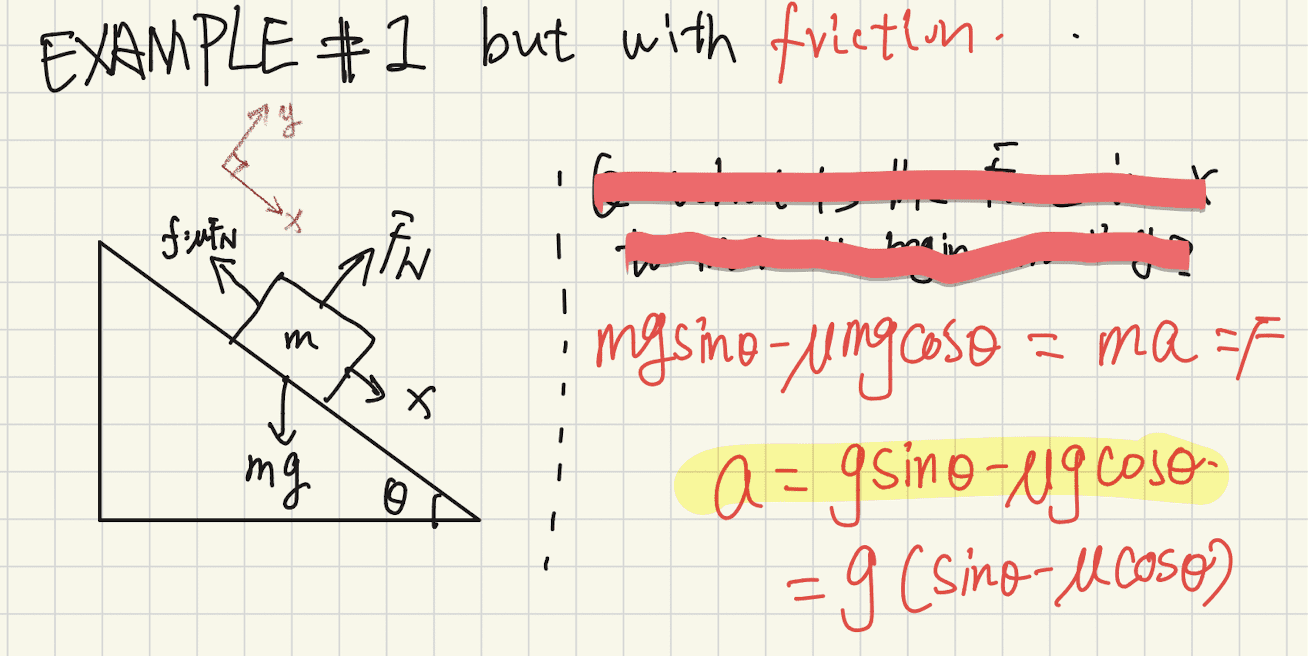 EXAMPLE #1 but with friction.
y
x
f=μFN
F̄N
m
x
mg
θ
mgsinθ-μmgcosθ = ma = F
a = gsinθ-μgcosθ.
= g(sinθ-μcosθ)